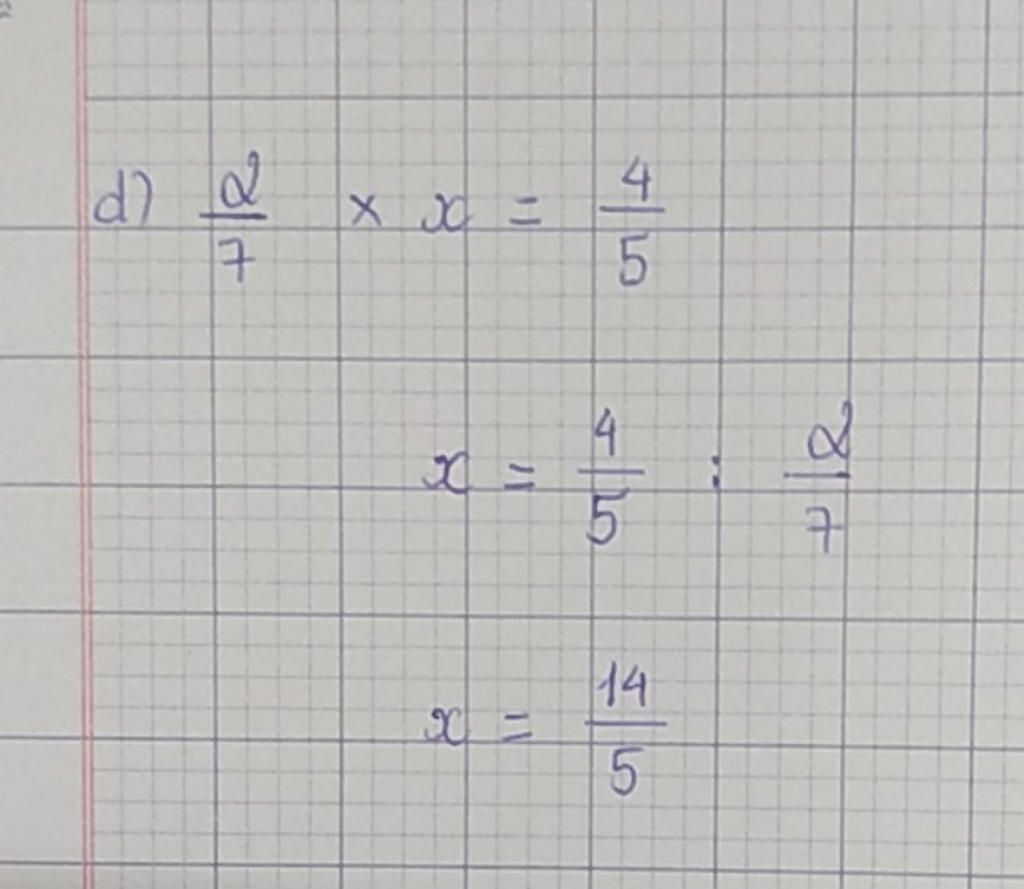 d) 2/7 × x = 4/5
x = 4/5 : 2/7
x = 14/5